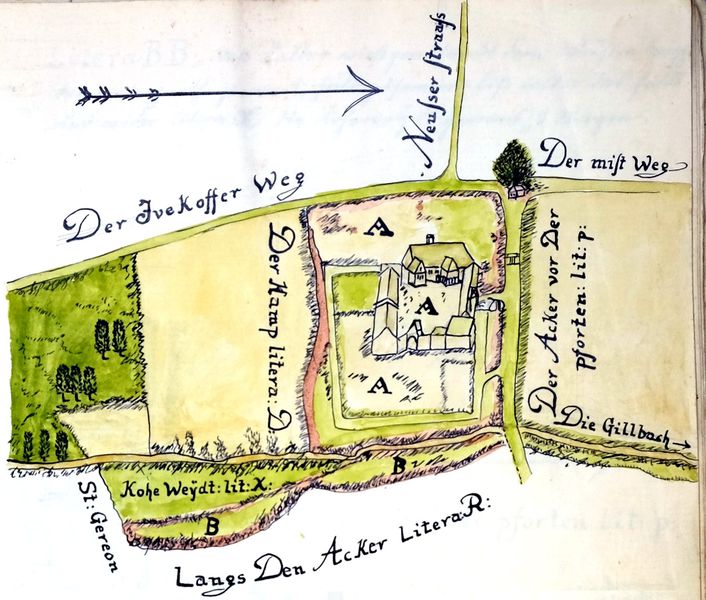 Neusser straass
Der mist Weg
Der Ivekoffer Weg
A
Der Kamp litera: D.
A
A
Der Acker vor Der
pforten: lit: p:
Die Gillbach
B
Kohe Weÿdt: lit: X:
B
St: Gereon
Langs Den Acker Litera R: